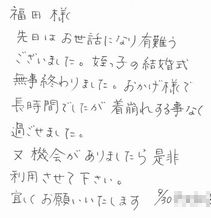 福田様
先日はお世話になり有難う
ございました。姪っ子の結婚式
無事終わりました。おかげ様で
長時間でしたが着崩れる事なく
過ごせました。
又機会がありましたら是非
利用させて下さい。
宜しくお願いいたします 9/30